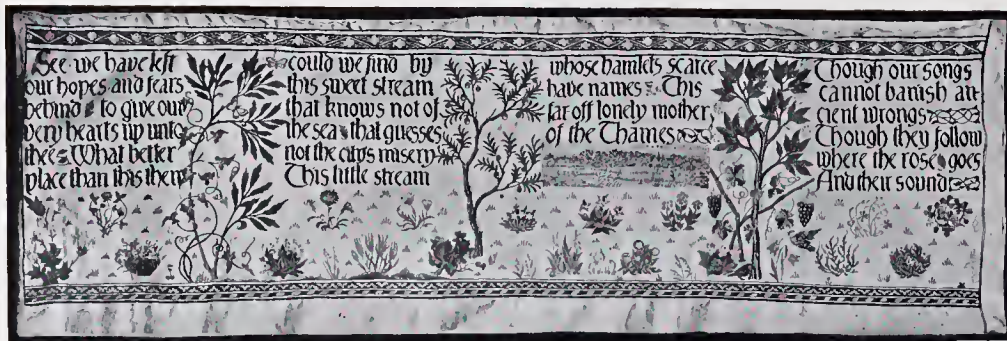 See we have left
our hopes and fears
behind to give our
very hearts up unto
thee What better
place than this then
could we find by
this sweet stream
that knows not of
the sea that guesses
not the citys misery
This little stream
whose hamlets scarce
have names This
far off lonely mother
of the Thames
Though our songs
cannot banish an
cient wrongs
Though they follow
where the rose goes
And their sound